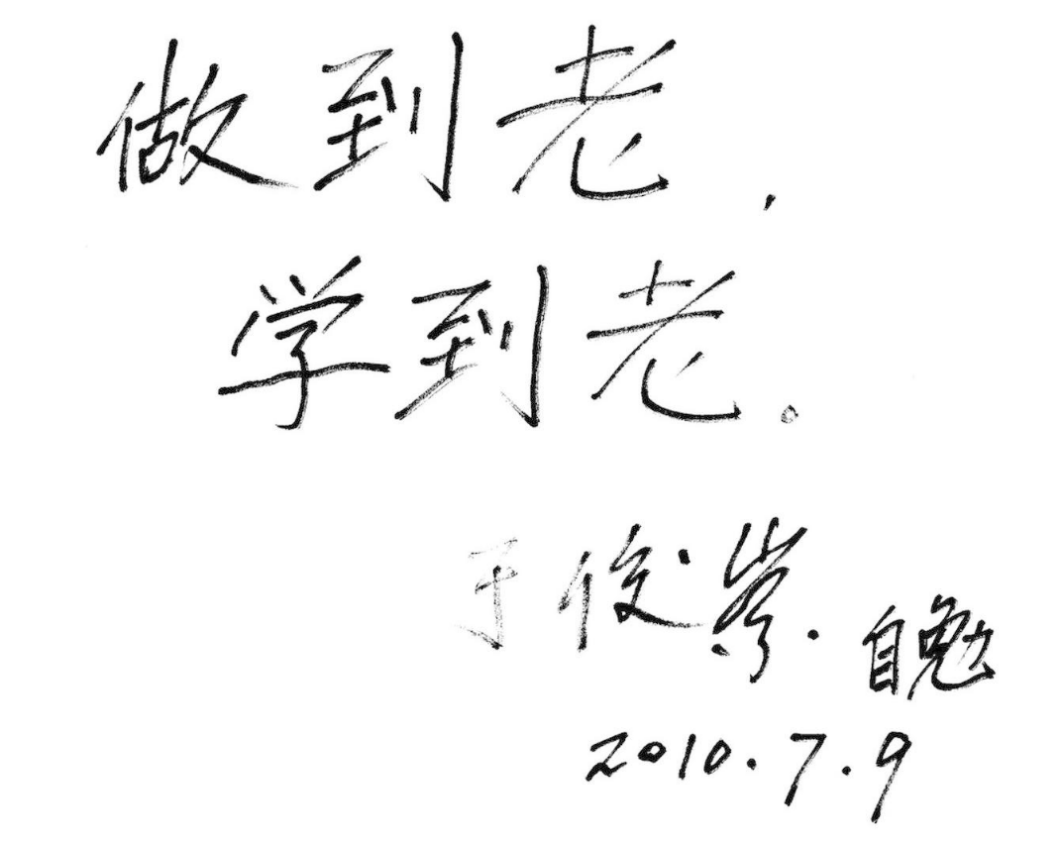 做到老,
学到老。
于俊崇·自勉
2010.7.9